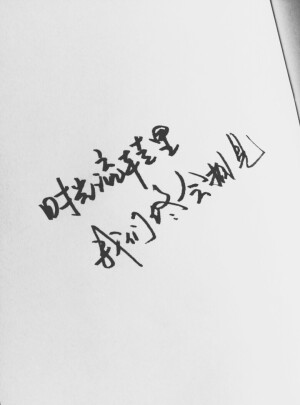 时光流转里
我们终会相见